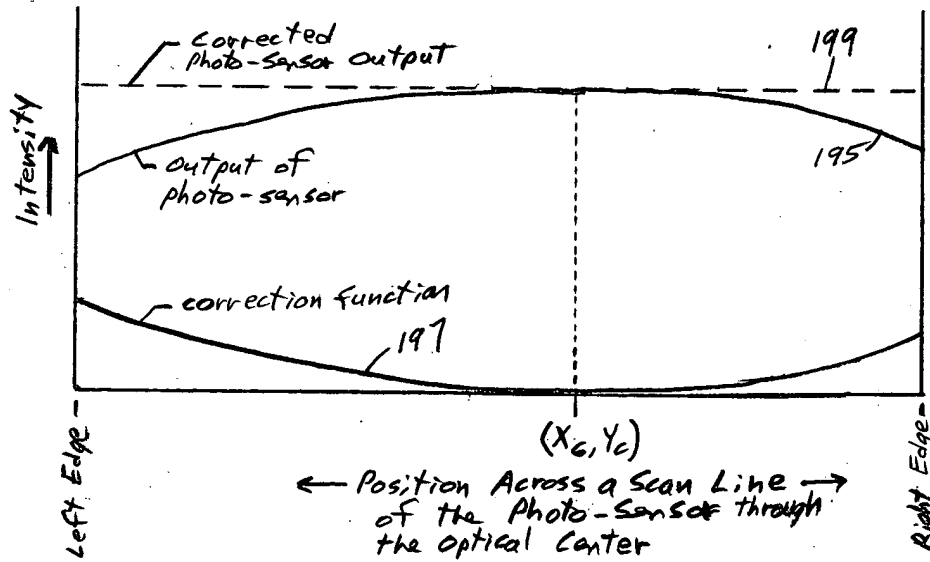 corrected
photo-sensor output
199
Intensity
output of
photo-sensor
195
correction function
197
(Xc, Yc)
Left Edge
Position Across a Scan Line
of the Photo-Sensor through
the Optical Center
Right Edge